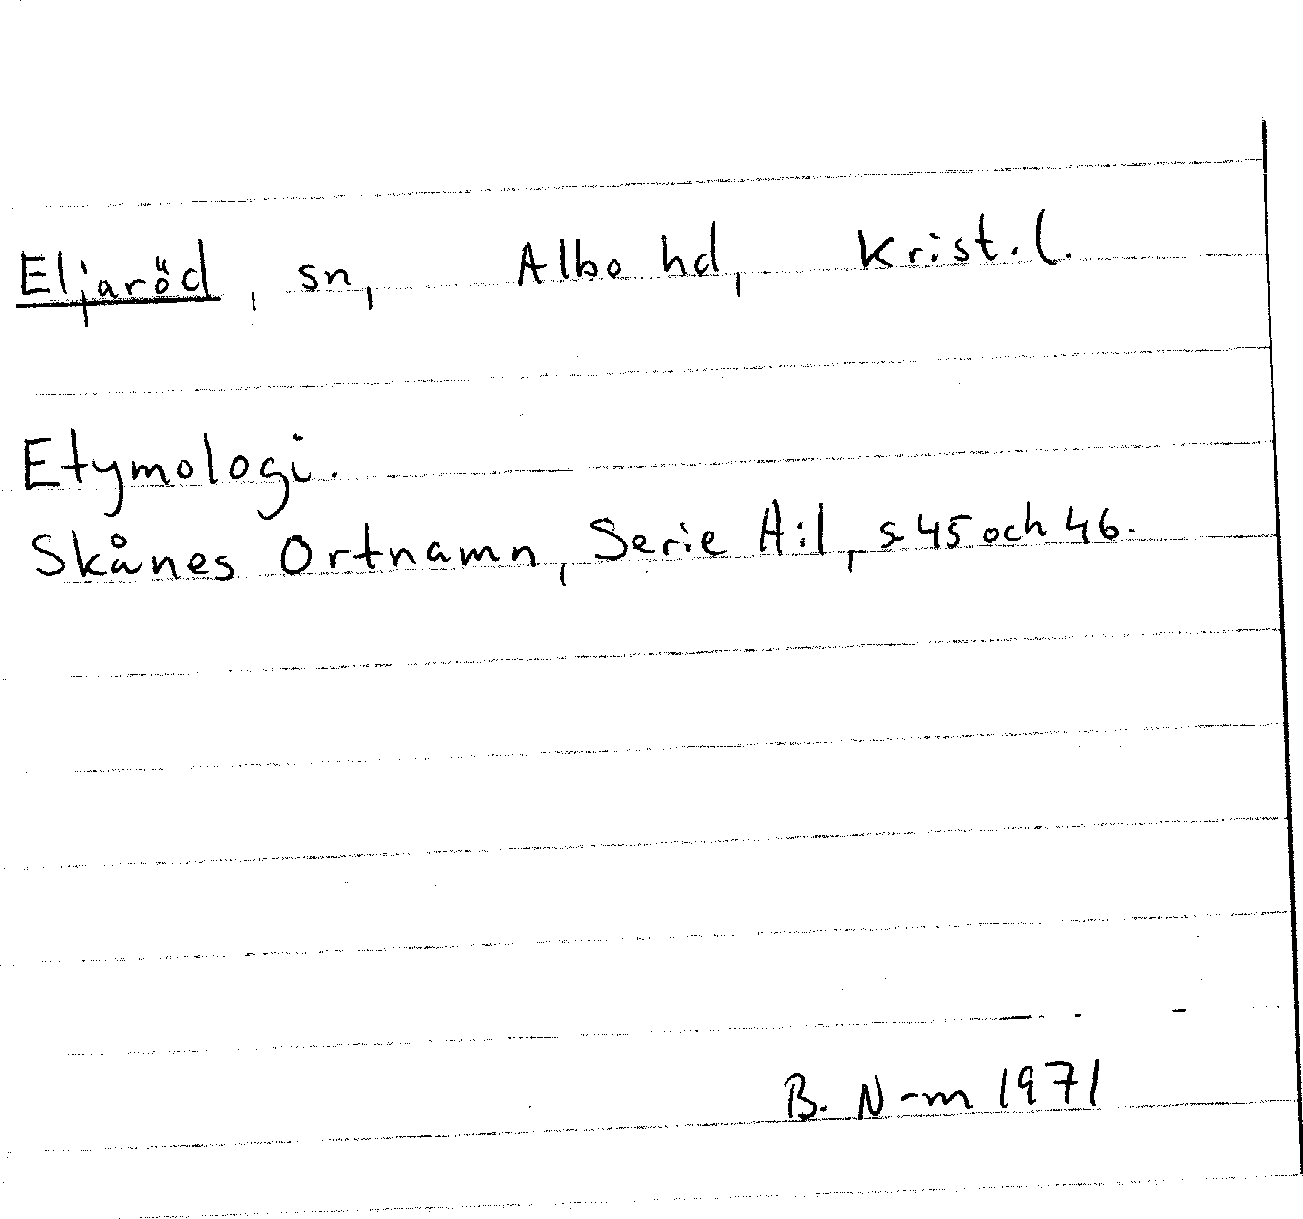 Eljaröd, sn, Albo hd, Krist. l.
Etymologi.
Skånes Ortnamn, Serie A:1, s 45 och 46.
B. N-m 1971